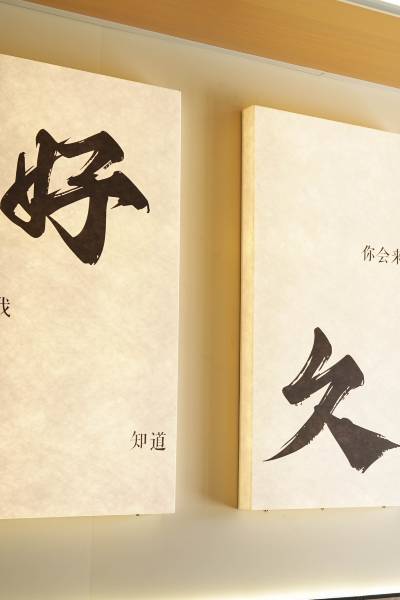 好
我
知道
你会来
久